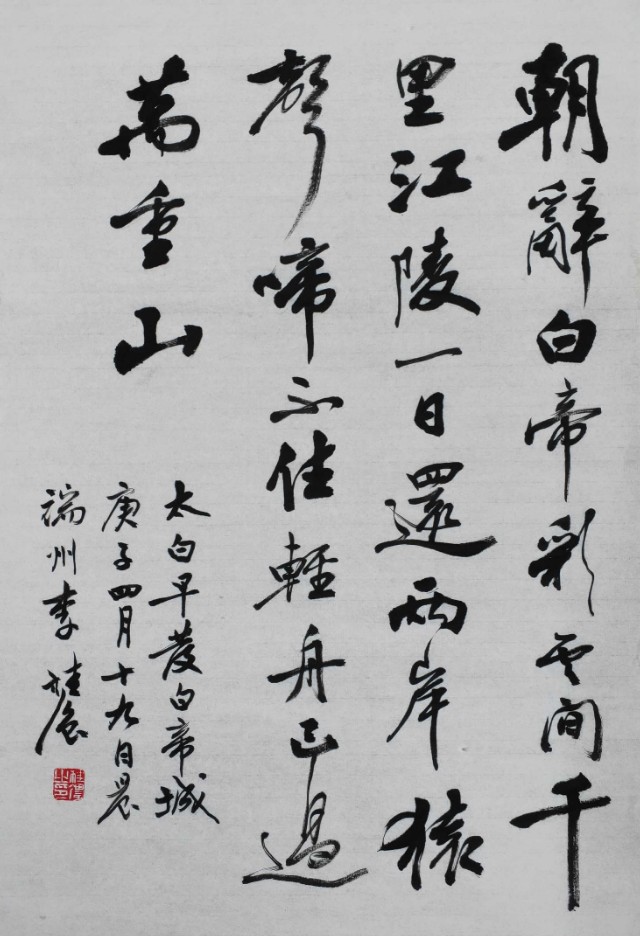 朝辭白帝彩云間千
里江陵一日還兩岸猿
聲啼不住輕舟已過
萬重山
太白早發白帝城
庚子四月十九日晨
端州李桂